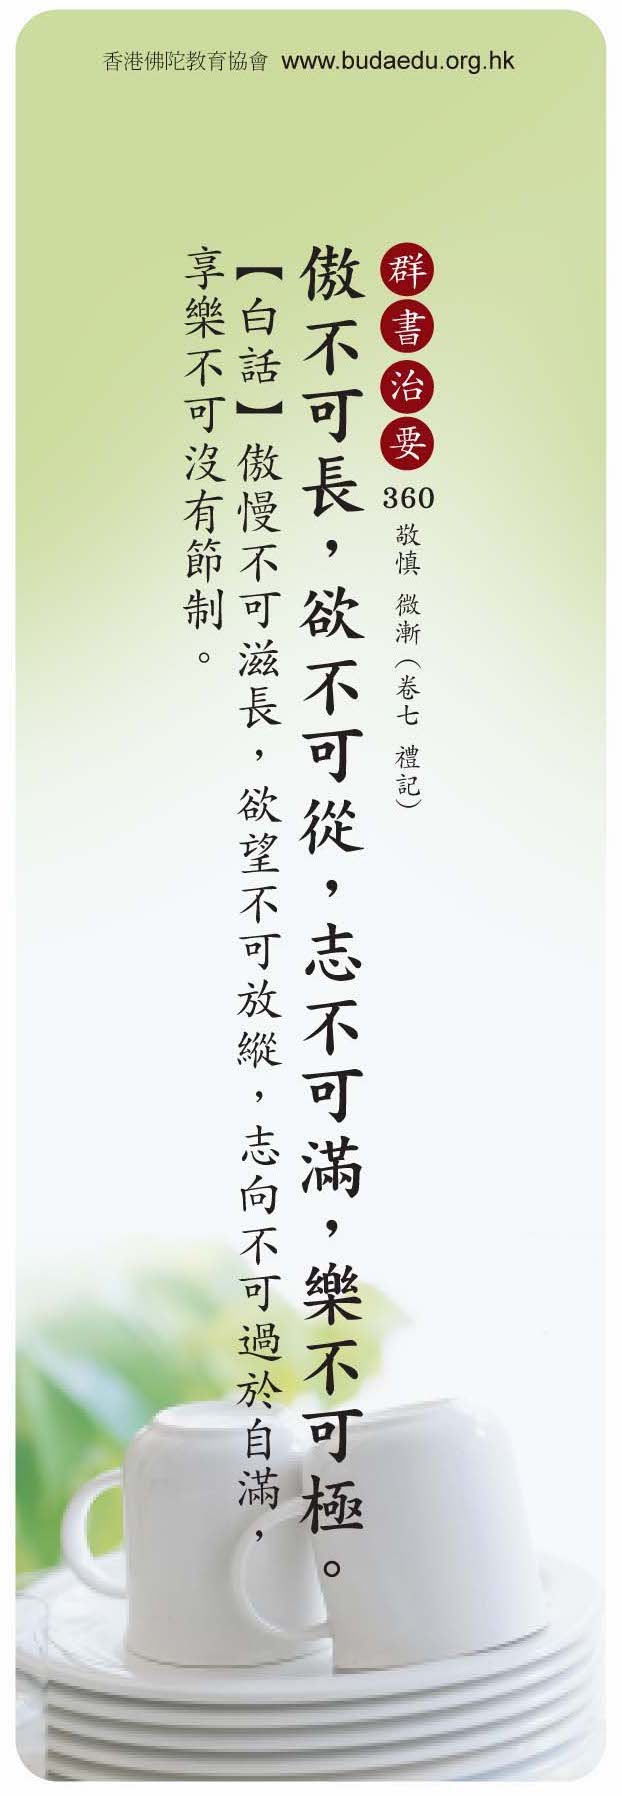 香港佛陀教育協會 www.budaedu.org.hk
群書治要360 敬慎 微漸（卷七 禮記）
傲不可長，欲不可從，志不可滿，樂不可極。
【白話】傲慢不可滋長，欲望不可放縱，志向不可過於自滿，
享樂不可沒有節制。